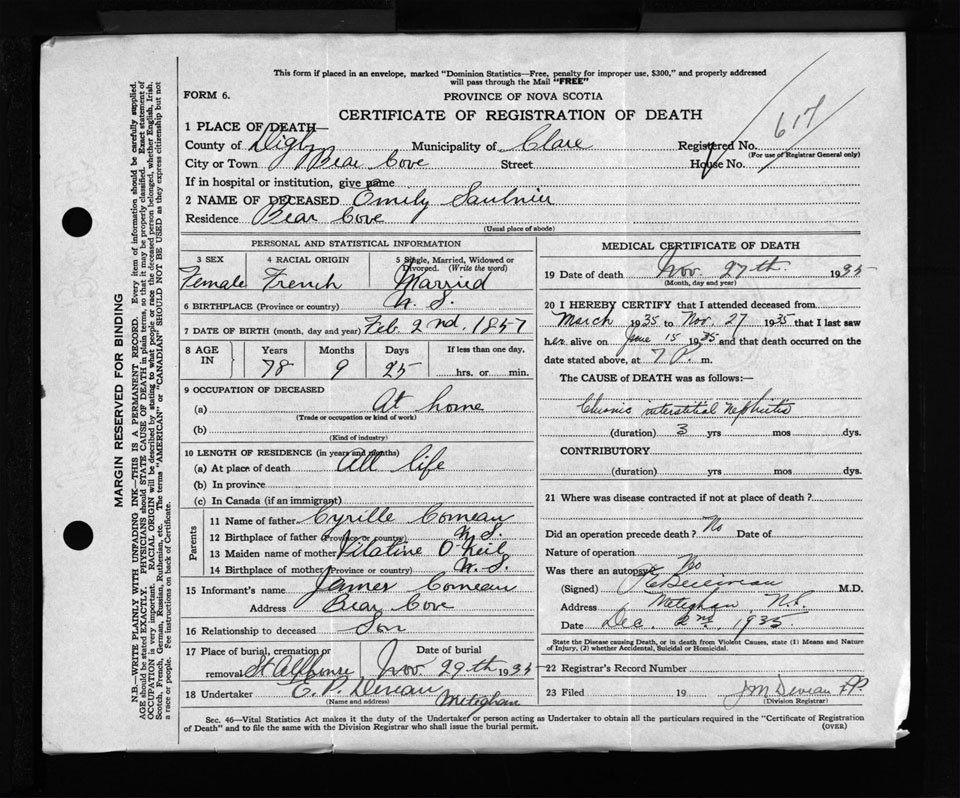 This form if placed in an envelope, marked "Dominion Statistics—Free, penalty for improper use, $300," and properly addressed
will pass through the Mail "FREE"
FORM 6.
PROVINCE OF NOVA SCOTIA
CERTIFICATE OF REGISTRATION OF DEATH
617
1 PLACE OF DEATH—
County of Digby Municipality of Clare Registered No.
(For use of Registrar General only)
City or Town Bear Cove Street House No.
If in hospital or institution, give name
2 NAME OF DECEASED Emily Saulnier
Residence Bear Cove
(Usual place of abode)
PERSONAL AND STATISTICAL INFORMATION
3 SEX 4 RACIAL ORIGIN 5 Single, Married, Widowed or
Divorced. (Write the word)
Female French Married
6 BIRTHPLACE (Province or country) N. S.
7 DATE OF BIRTH (month, day and year) Feb 2nd, 1857
8 AGE IN Years Months Days If less than one day.
78 9 25 hrs. or min.
9 OCCUPATION OF DECEASED
(a) At home
(Trade or occupation or kind of work)
(b)
(Kind of industry)
10 LENGTH OF RESIDENCE (in years and months)
(a) At place of death All life
(b) In province
(c) In Canada (if an immigrant)
Parents
11 Name of father Cyrille Comeau
12 Birthplace of father (Province or country) N. S.
13 Maiden name of mother O'Neil
14 Birthplace of mother (Province or country) N. S.
15 Informant's name James Comeau
Address Bear Cove
16 Relationship to deceased Son
17 Place of burial, cremation or Date of burial
removal St Alphonse Nov. 29th 1935
18 Undertaker E. P. Deveau Meteghan
(Name and address)
MEDICAL CERTIFICATE OF DEATH
19 Date of death Nov. 27th 1935
(Month, day and year)
20 I HEREBY CERTIFY that I attended deceased from
March 1935 to Nov. 27 1935 that I last saw
her alive on June 15 1935 and that death occurred on the
date stated above, at 7 P. m.
The CAUSE OF DEATH was as follows:—
Chronic interstitial Nephritis
(duration) 3 yrs mos dys.
CONTRIBUTORY
(duration) yrs mos dys.
21 Where was disease contracted if not at place of death ?
Did an operation precede death ? No Date of
Nature of operation
Was there an autopsy No
(Signed) M.D.
Address Meteghan, N.S.
Date Dec. 2nd, 1935
State the Disease causing Death, or in death from Violent Causes, state (1) Means and Nature
of Injury, (2) whether Accidental, Suicidal or Homicidal.
22 Registrar's Record Number
23 Filed 19 J M Deveau J.P.
(Division Registrar)
Sec. 46—Vital Statistics Act makes it the duty of the Undertaker or person acting as Undertaker to obtain all the particulars required in the "Certificate of Registration
of Death" and to file the same with the Division Registrar who shall issue the burial permit.
(OVER)
MARGIN RESERVED FOR BINDING
N.B.—WRITE PLAINLY WITH UNFADING INK—THIS IS A PERMANENT RECORD. Every item of information should be carefully supplied.
AGE should be stated EXACTLY. PHYSICIANS should STATE CAUSE OF DEATH in plain terms, so that it may be properly classified. Exact statement of
OCCUPATION is very important. RACIAL ORIGIN will be described by stating to what people or race the deceased person belonged, whether English, Irish,
Scotch, French, German, Russian, Ruthenian, etc. The terms "AMERICAN" or "CANADIAN" SHOULD NOT BE USED as they express citizenship but not
a race or people. See instructions on back of Certificate.